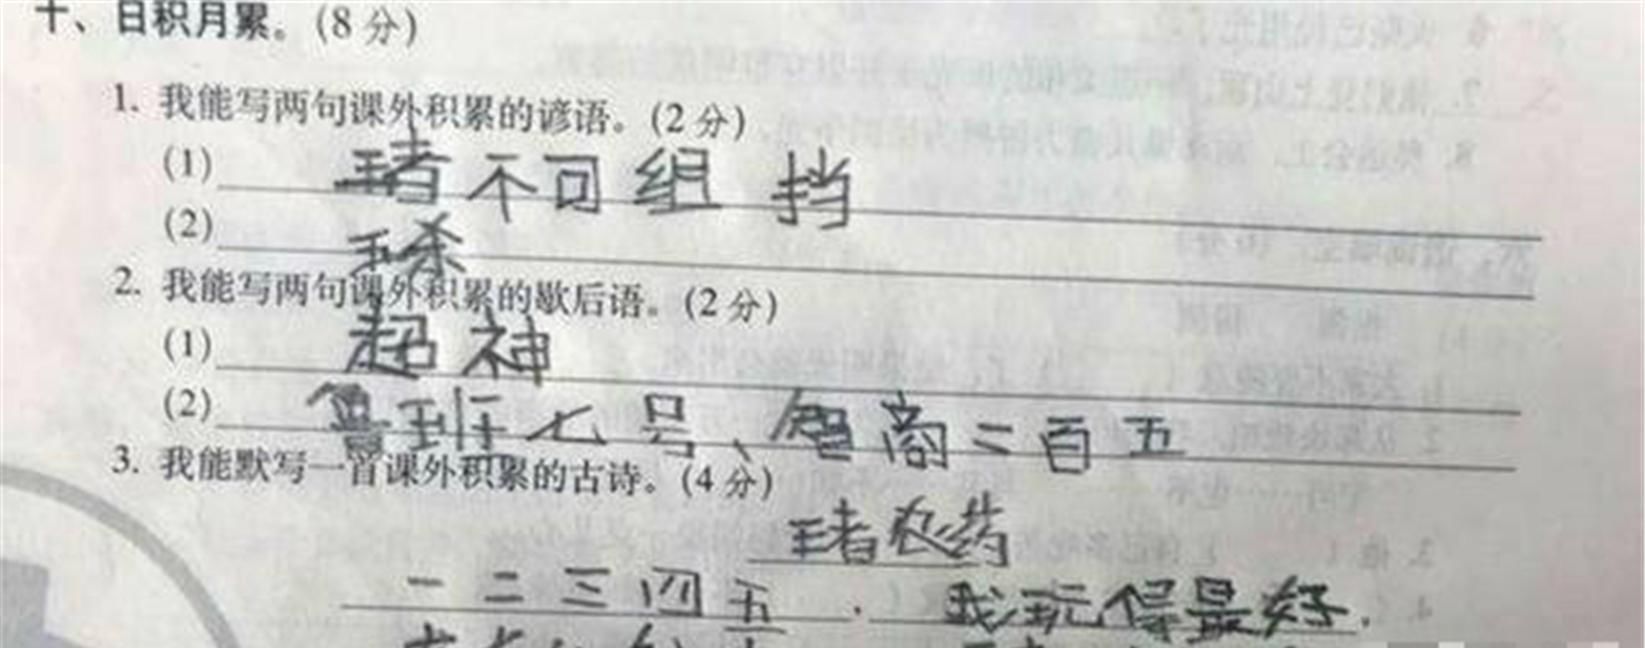 十、日积月累。(8分)
1. 我能写两句课外积累的谚语。(2分)
(1) 王者不可组挡
(2) 五杀
2. 我能写两句课外积累的歇后语。(2分)
(1) 超神
(2) 鲁班七号、智商二百五
3. 我能默写一首课外积累的古诗。(4分)
王者农药
一二三四五. 我玩得最好.